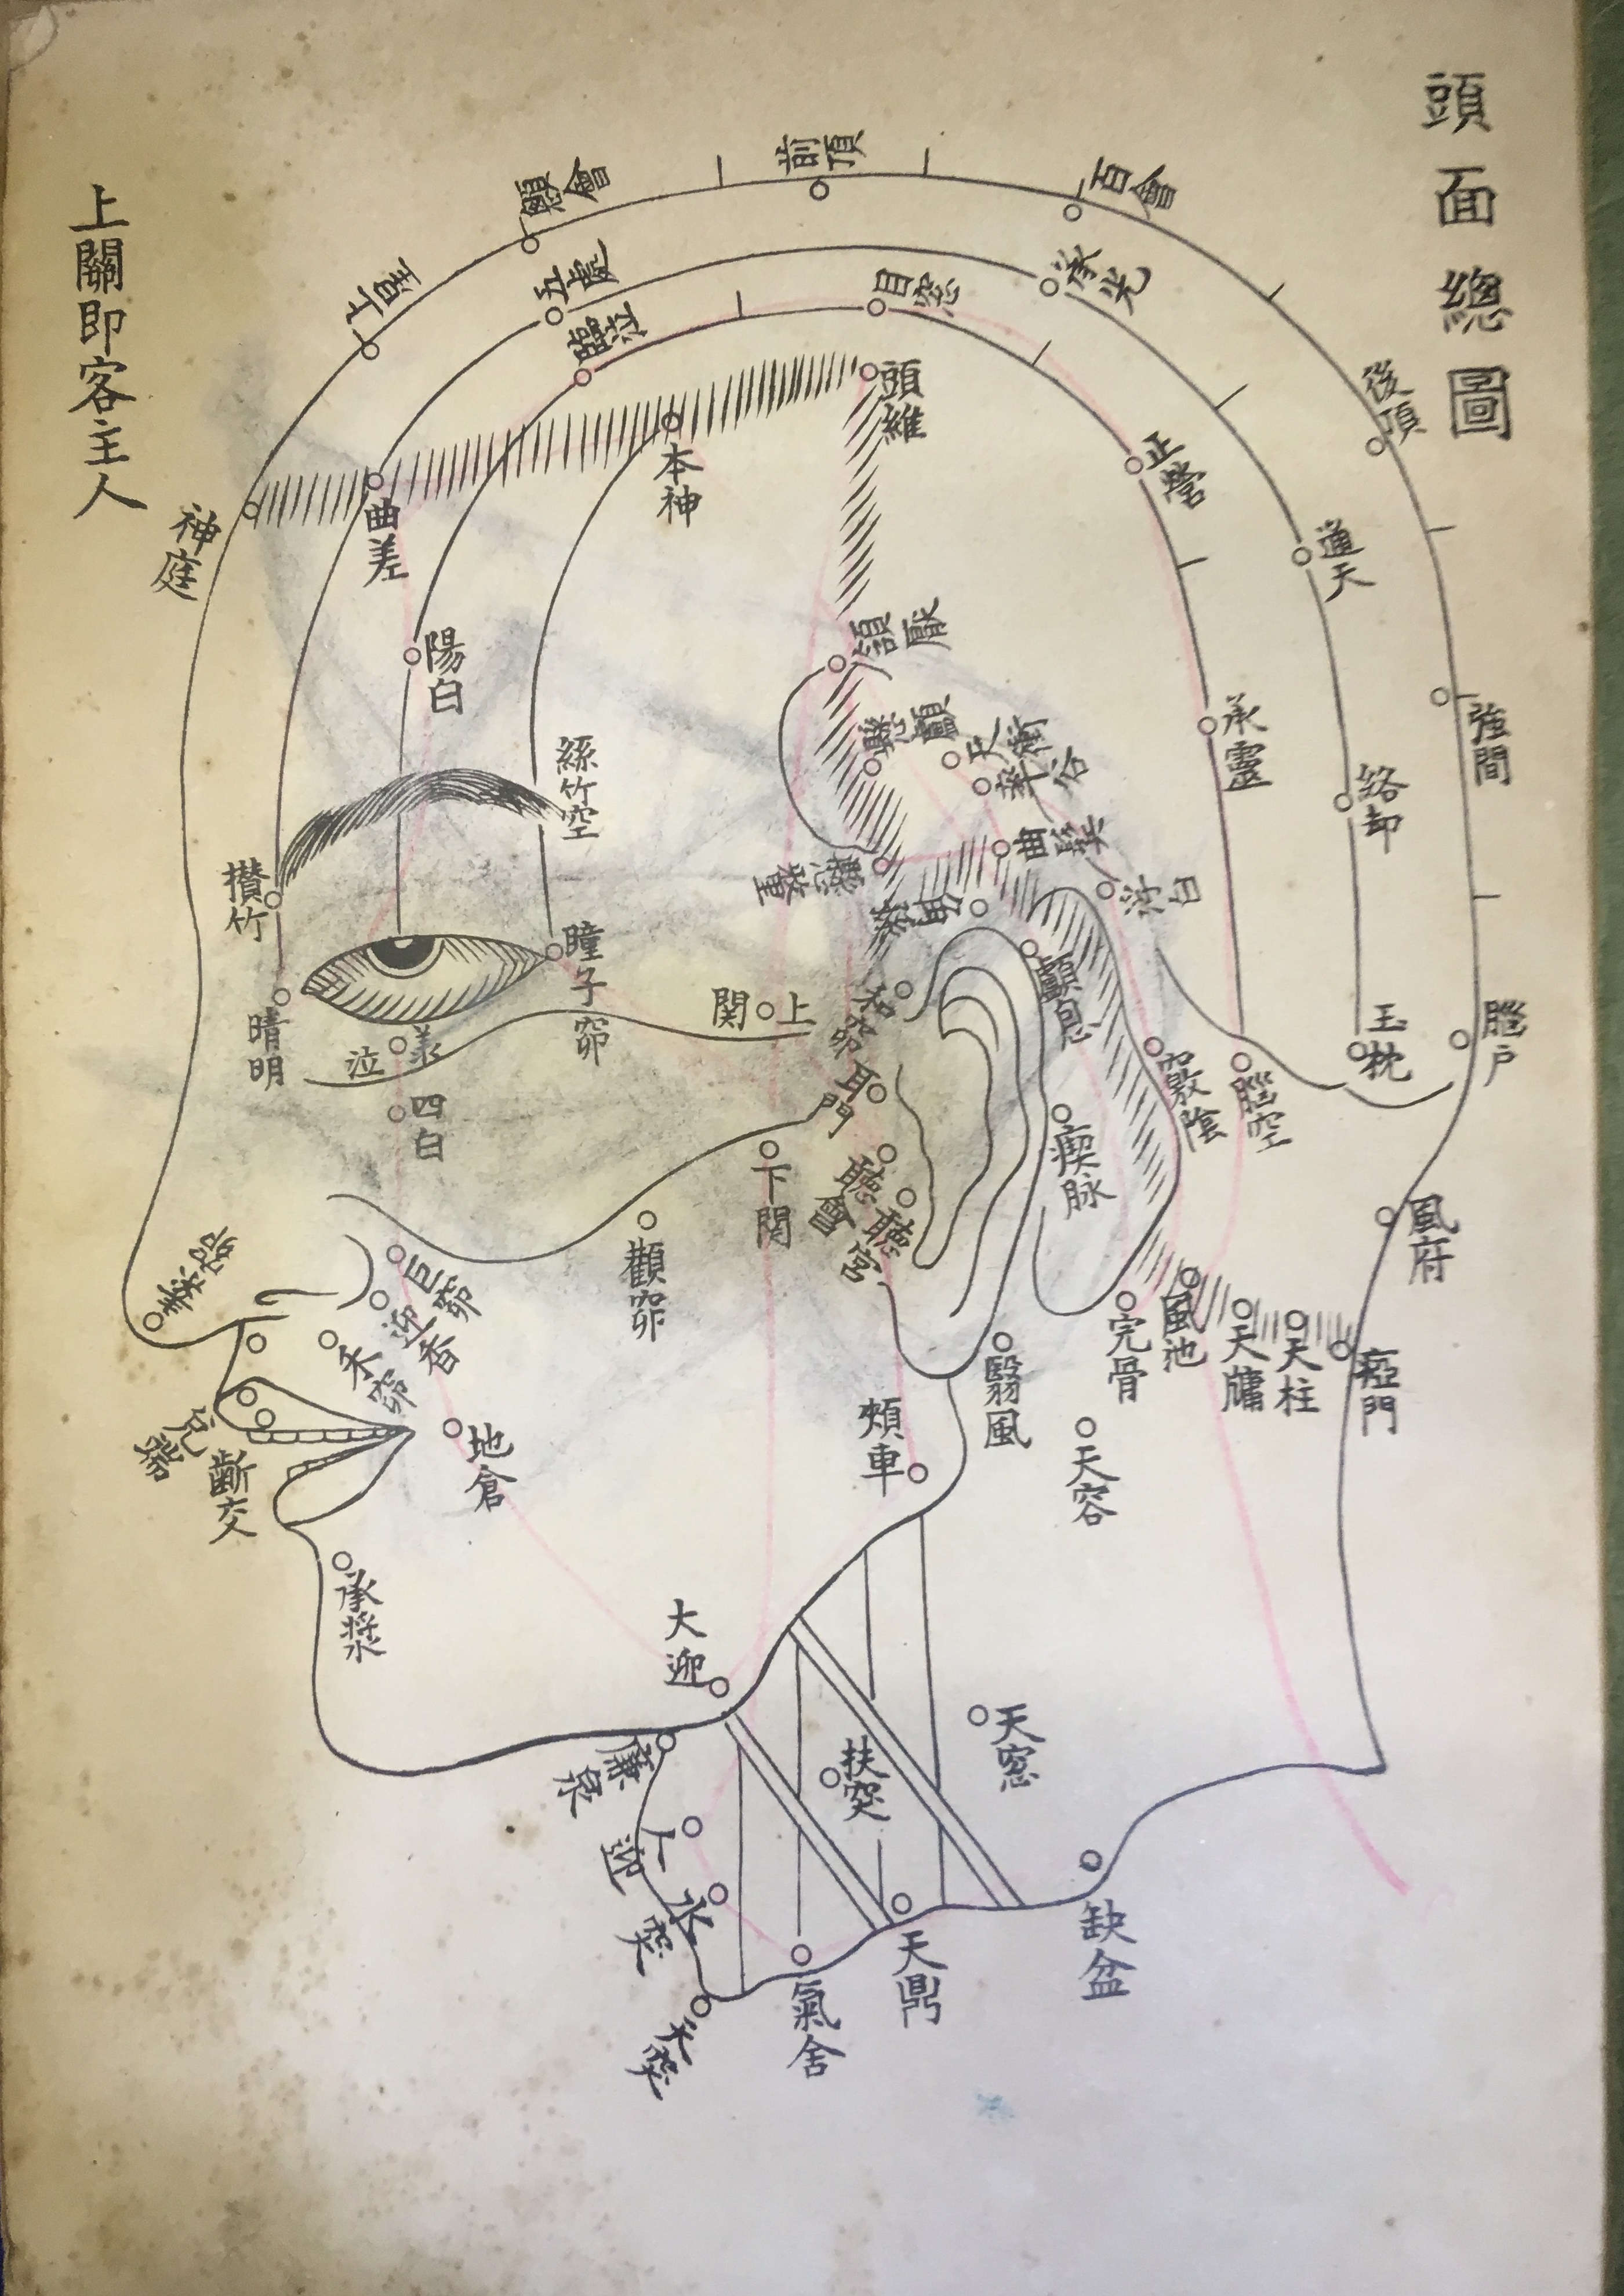 頭面總圖
上關即客主人
前頂
顖會
上星
神庭
百會
後頂
強間
腦戶
風府
瘂門
五處
承光
通天
絡却
玉枕
曲差
臨泣
目窓
正營
承靈
腦空
頭維
本神
陽白
頷厭
懸顱
懸釐
天衝
率谷
曲髩
浮白
竅陰
顱息
瘈脉
絲竹空
攢竹
瞳子窌
晴明
承泣
四白
上関
和窌
耳門
聽會
聽宮
下関
顴窌
巨窌
迎香
禾窌
素窌
兌端
齗交
地倉
承漿
頰車
翳風
完骨
風池
天牖
天柱
天容
大迎
廉泉
人迎
水突
天突
氣舍
扶突
天窓
天鼎
缺盆